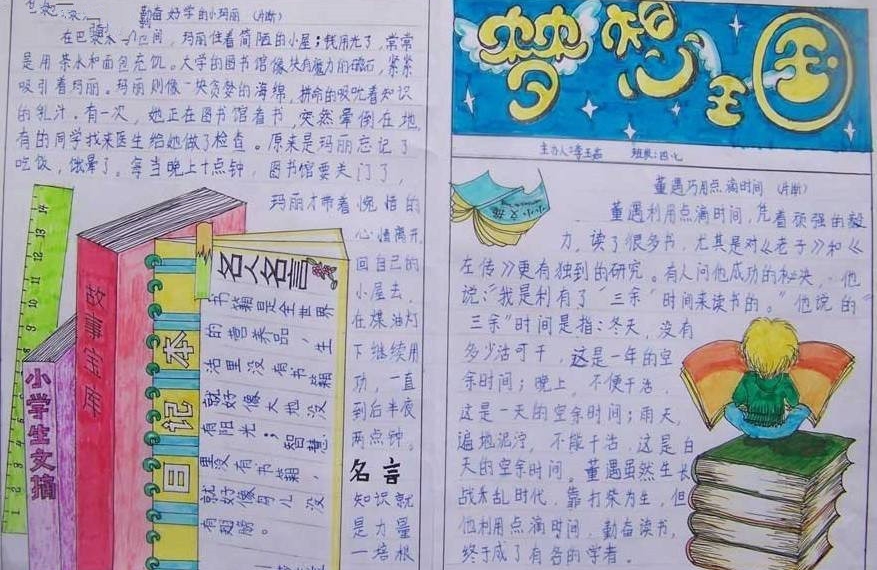 勤奋好学的小玛丽 (片断)
玛丽住着简陋的小屋;钱用光了,常常
是用茶水和面包充饥。大学的图书馆像块有魔力的磁石,紧紧
吸引着玛丽。玛丽则像一块贪婪的海绵,拼命的吸吮着知识
的乳汁。有一次,她正在图书馆看书,突然晕倒在地,
有的同学找来医生给她做了检查。原来是玛丽忘记了
吃饭,饿晕了。每当晚上十点钟,图书馆要关门了,
玛丽才带着惋惜的
心情离开,
回自己的
小屋去,
在煤油灯
下继续用
功,一直
到后半夜
两点钟。
名言
知识就
是力量
一培根
故事宝库
小学生文摘
日记本
名人名言
书籍是全世界
的营养品,生
活里没有书籍
就好像大地没
有阳光;智慧
里没有书籍,
就好像鸟儿没
有翅膀。
1 2 3 8 9 10 11 12 13 14
梦想王国
主办人:李玉嘉 班级:四.七
小小文摘
董遇巧用点滴时间 (片断)
董遇利用点滴时间,凭着顽强的毅
力,读了很多书,尤其是对《老子》和《
左传》更有独到的研究。有人问他成功的秘决,他
说:“我是利有了“三余”时间来读书的。”他说的“
三余”时间是指:冬天,没有
多少活可干,这是一年的空
余时间;晚上,不便干活,
这是一天的空余时间;雨天,
遍地泥泞,不能干活,这是白
天的空余时间。董遇虽然生长
战禾乱时代,靠打柴为生,但
他利用点滴时间,勤奋读书,
终于成了有各的学者。